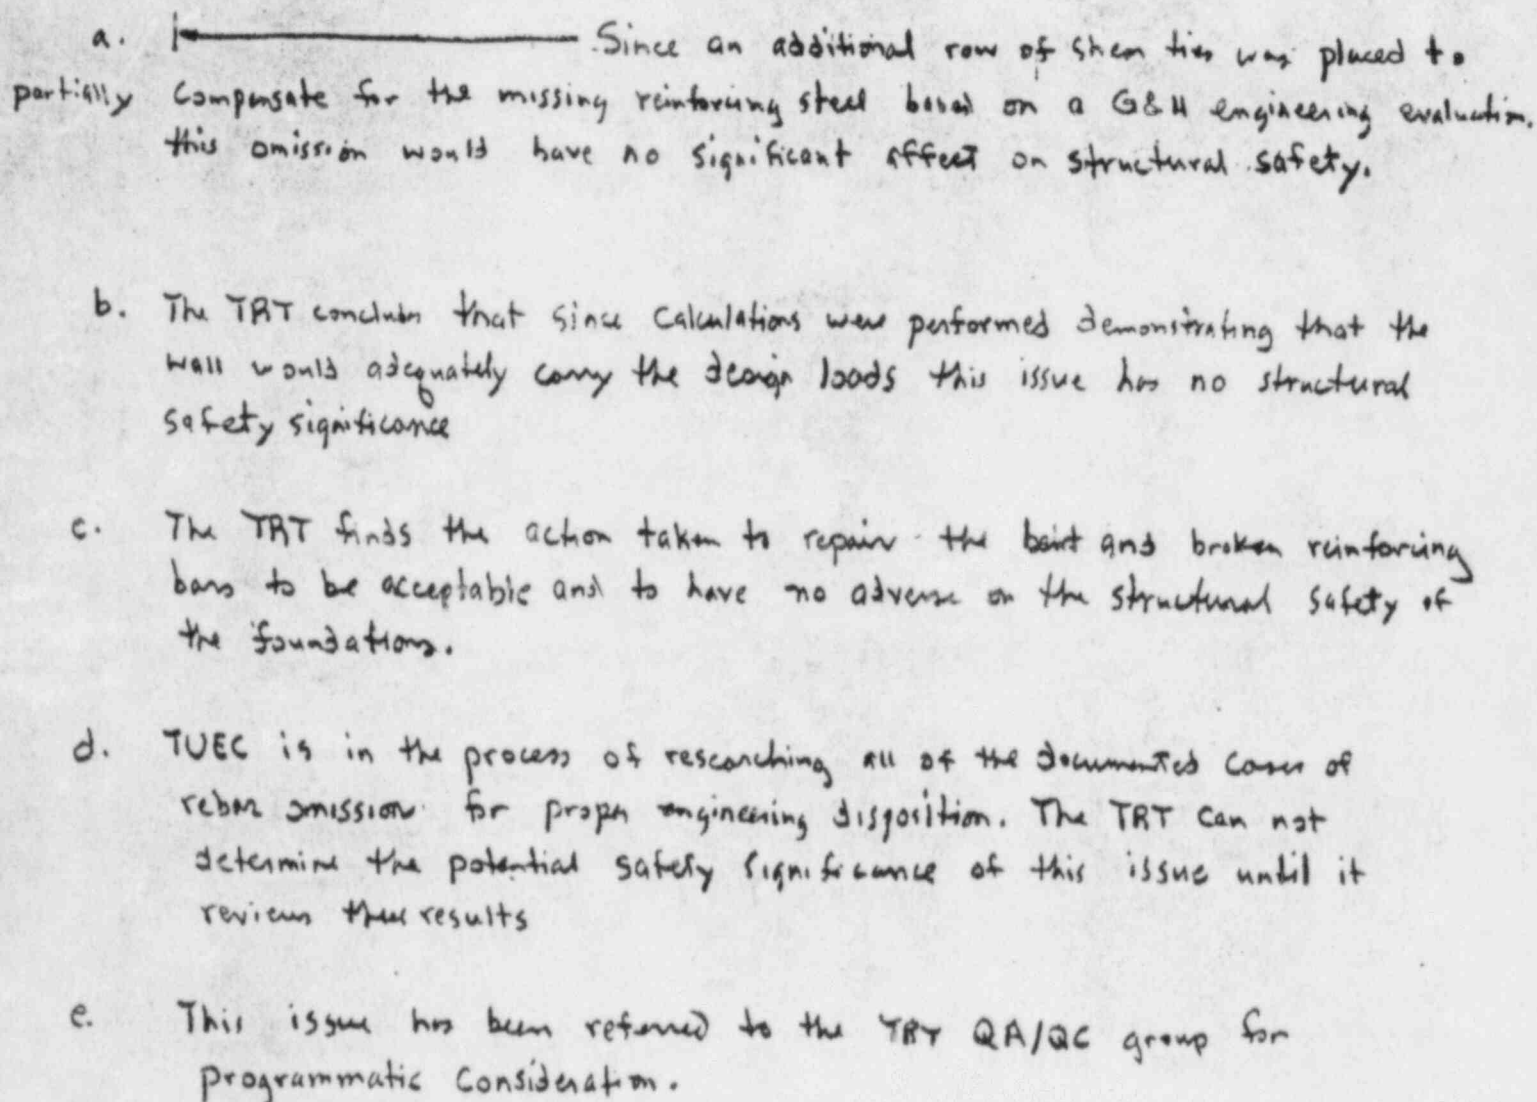 a. Since an additional row of shear ties was placed to
partially compensate for the missing reinforcing steel based on a G&H engineering evaluation.
this omission would have no significant affect on structural safety.
b. The TRT concludes that since calculations were performed demonstrating that the
wall would adequately carry the design loads this issue has no structural
safety significance
c. The TRT finds the action taken to repair the bent and broken reinforcing
bars to be acceptable and to have no adverse on the structural safety of
the foundations.
d. TUEC is in the process of researching all of the documented cases of
rebar omission for proper engineering disposition. The TRT can not
determine the potential safety significance of this issue until it
reviews these results
e. This issue has been referred to the TRT QA/QC group for
programmatic consideration.